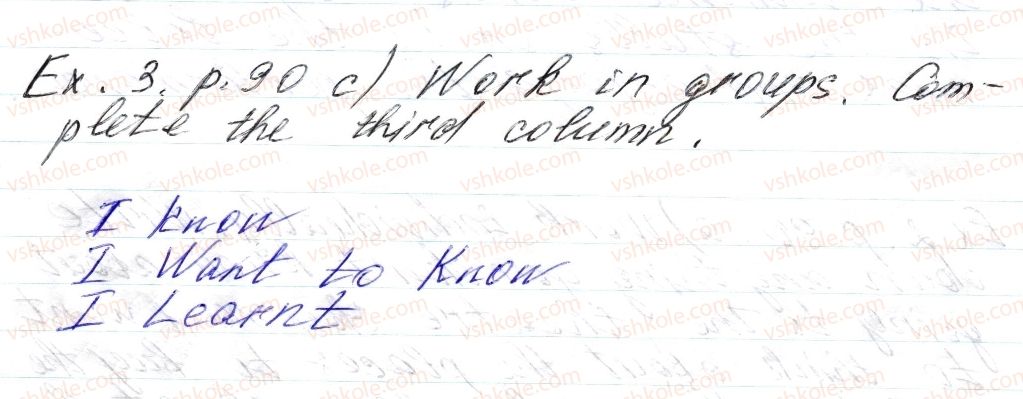 Ex. 3. p. 90 c) Work in groups. Com-
plete the third column.
I know
I Want to Know
I Learnt